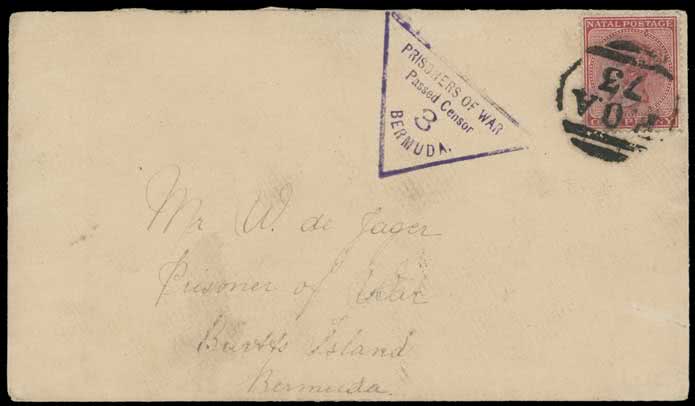 NATAL POSTAGE
POA
73
PRISONERS OF WAR
Passed Censor
3
BERMUDA.
Mr W. de Jager
Prisoner of War
Burtts Island
Bermuda.